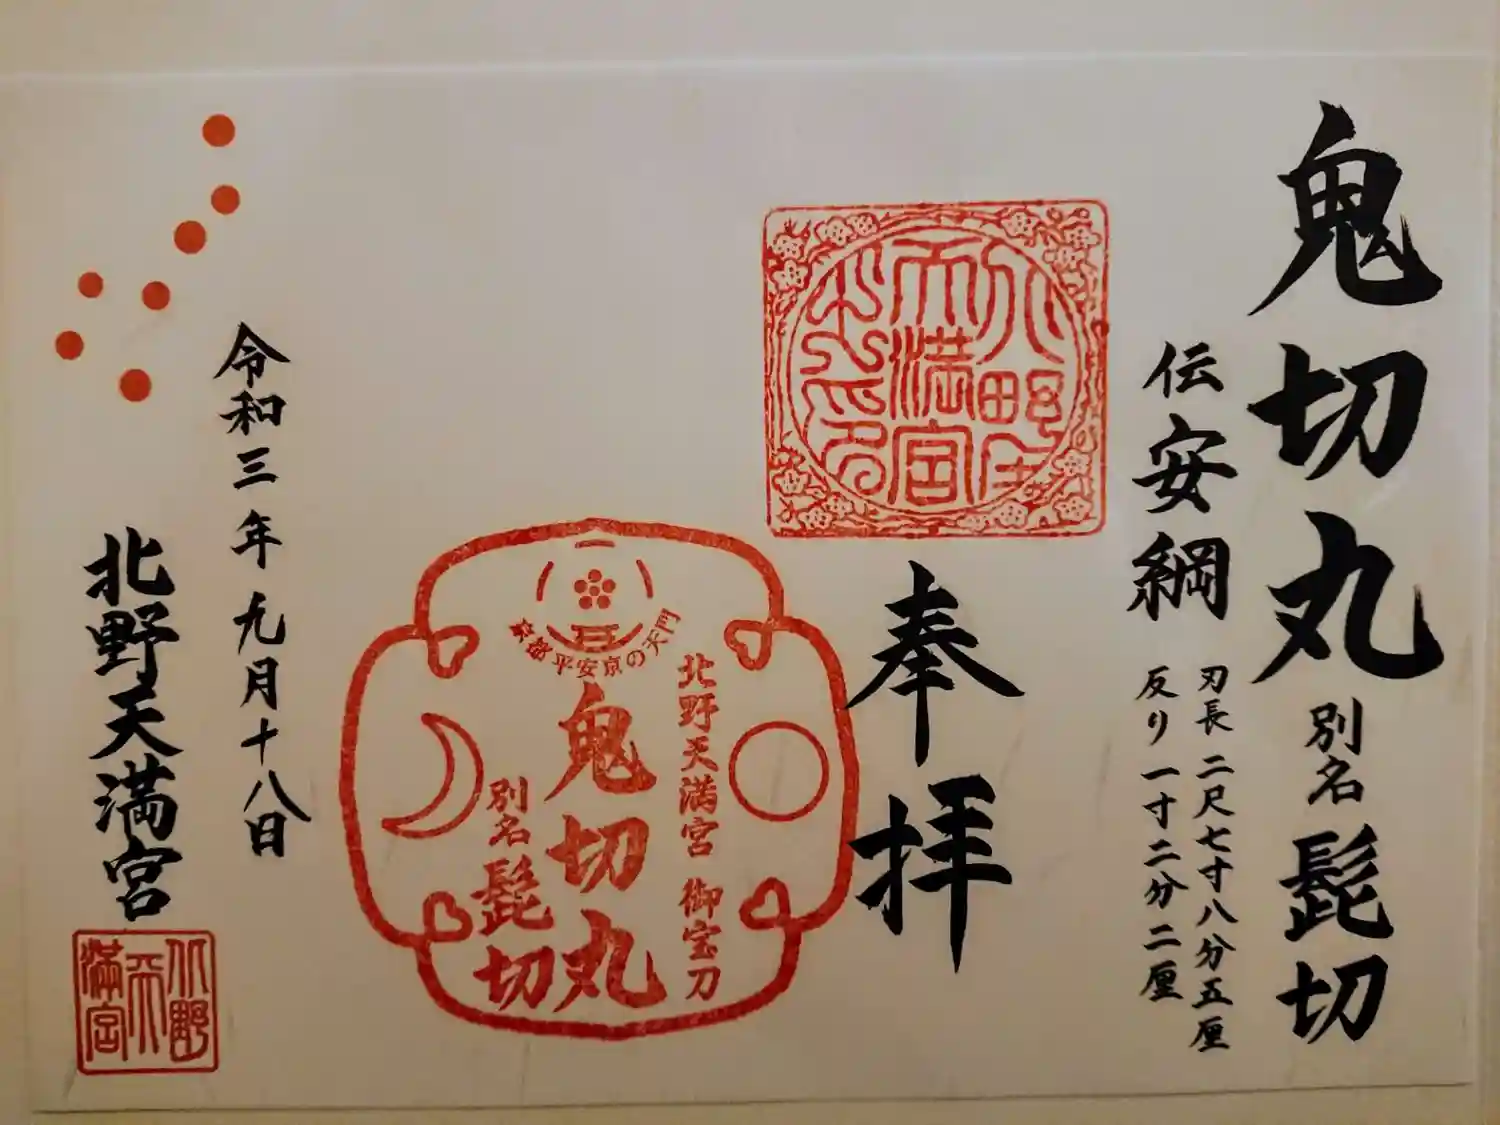 鬼切丸 別名 髭切
伝 安綱
刃長 二尺七寸八分五厘
反り 一寸二分二厘
奉拝
北野天満宮
北野天満宮 御宝刀
鬼切丸
別名 髭切
平安京の天門
令和三年九月十八日
北野天満宮
北野天満宮